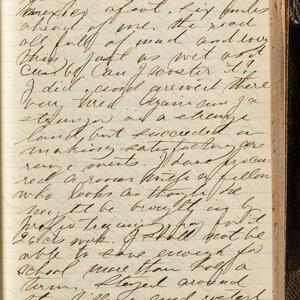 afoot. Six miles
ahead of me. the road
all full of mud and very
thin, just as wet as it
can be. Can I master it?
I did, and arrived there
very tired. Again am I a
stranger in a strange
land, but succeeded in
making satisfactory ar-
rangements. I have procu-
red a room with a fellow
who looks as though he
might be brought up by
proper training
work. I shall not be
able to save enough for
school more than half a
term. Stayed around